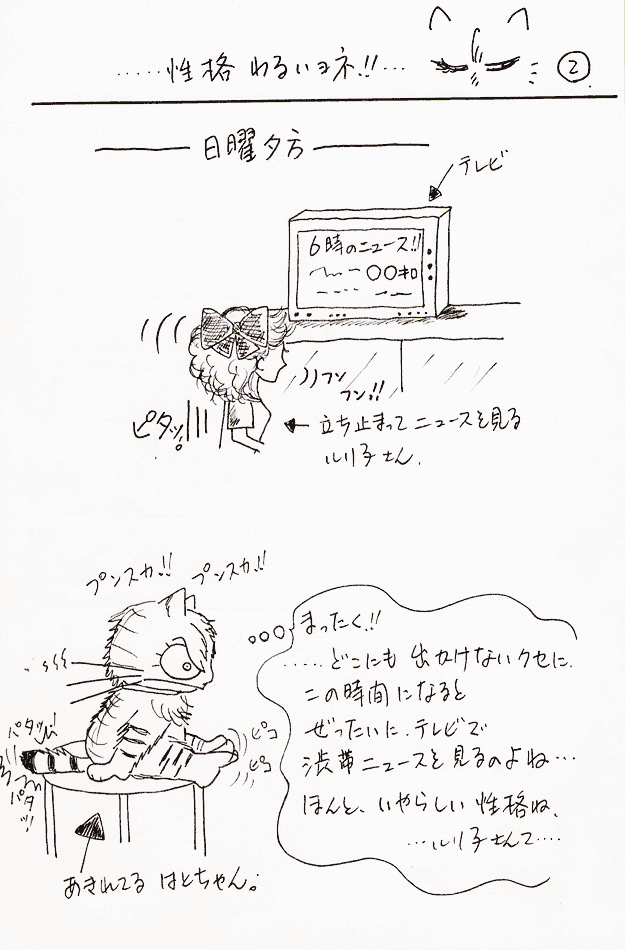 .....性格 わるいヨネ!!...
②
日曜夕方
テレビ
6時のニュース!!
〇〇キロ
フン
フン!!
ピタッ!
立ち止まって ニュースを見る
ルリ子さん.
プンスカ!! プンスカ!!
まったく!!
.....どこにも 出かけないクセに.
この時間になると
ぜったいに.テレビで
渋滞ニュースを見るのよね...
ほんと、いやらしい性格ね.
...ルリ子さんて....
ピコ
ピコ
パタッ!
パタッ!
あきれてる はとちゃん。